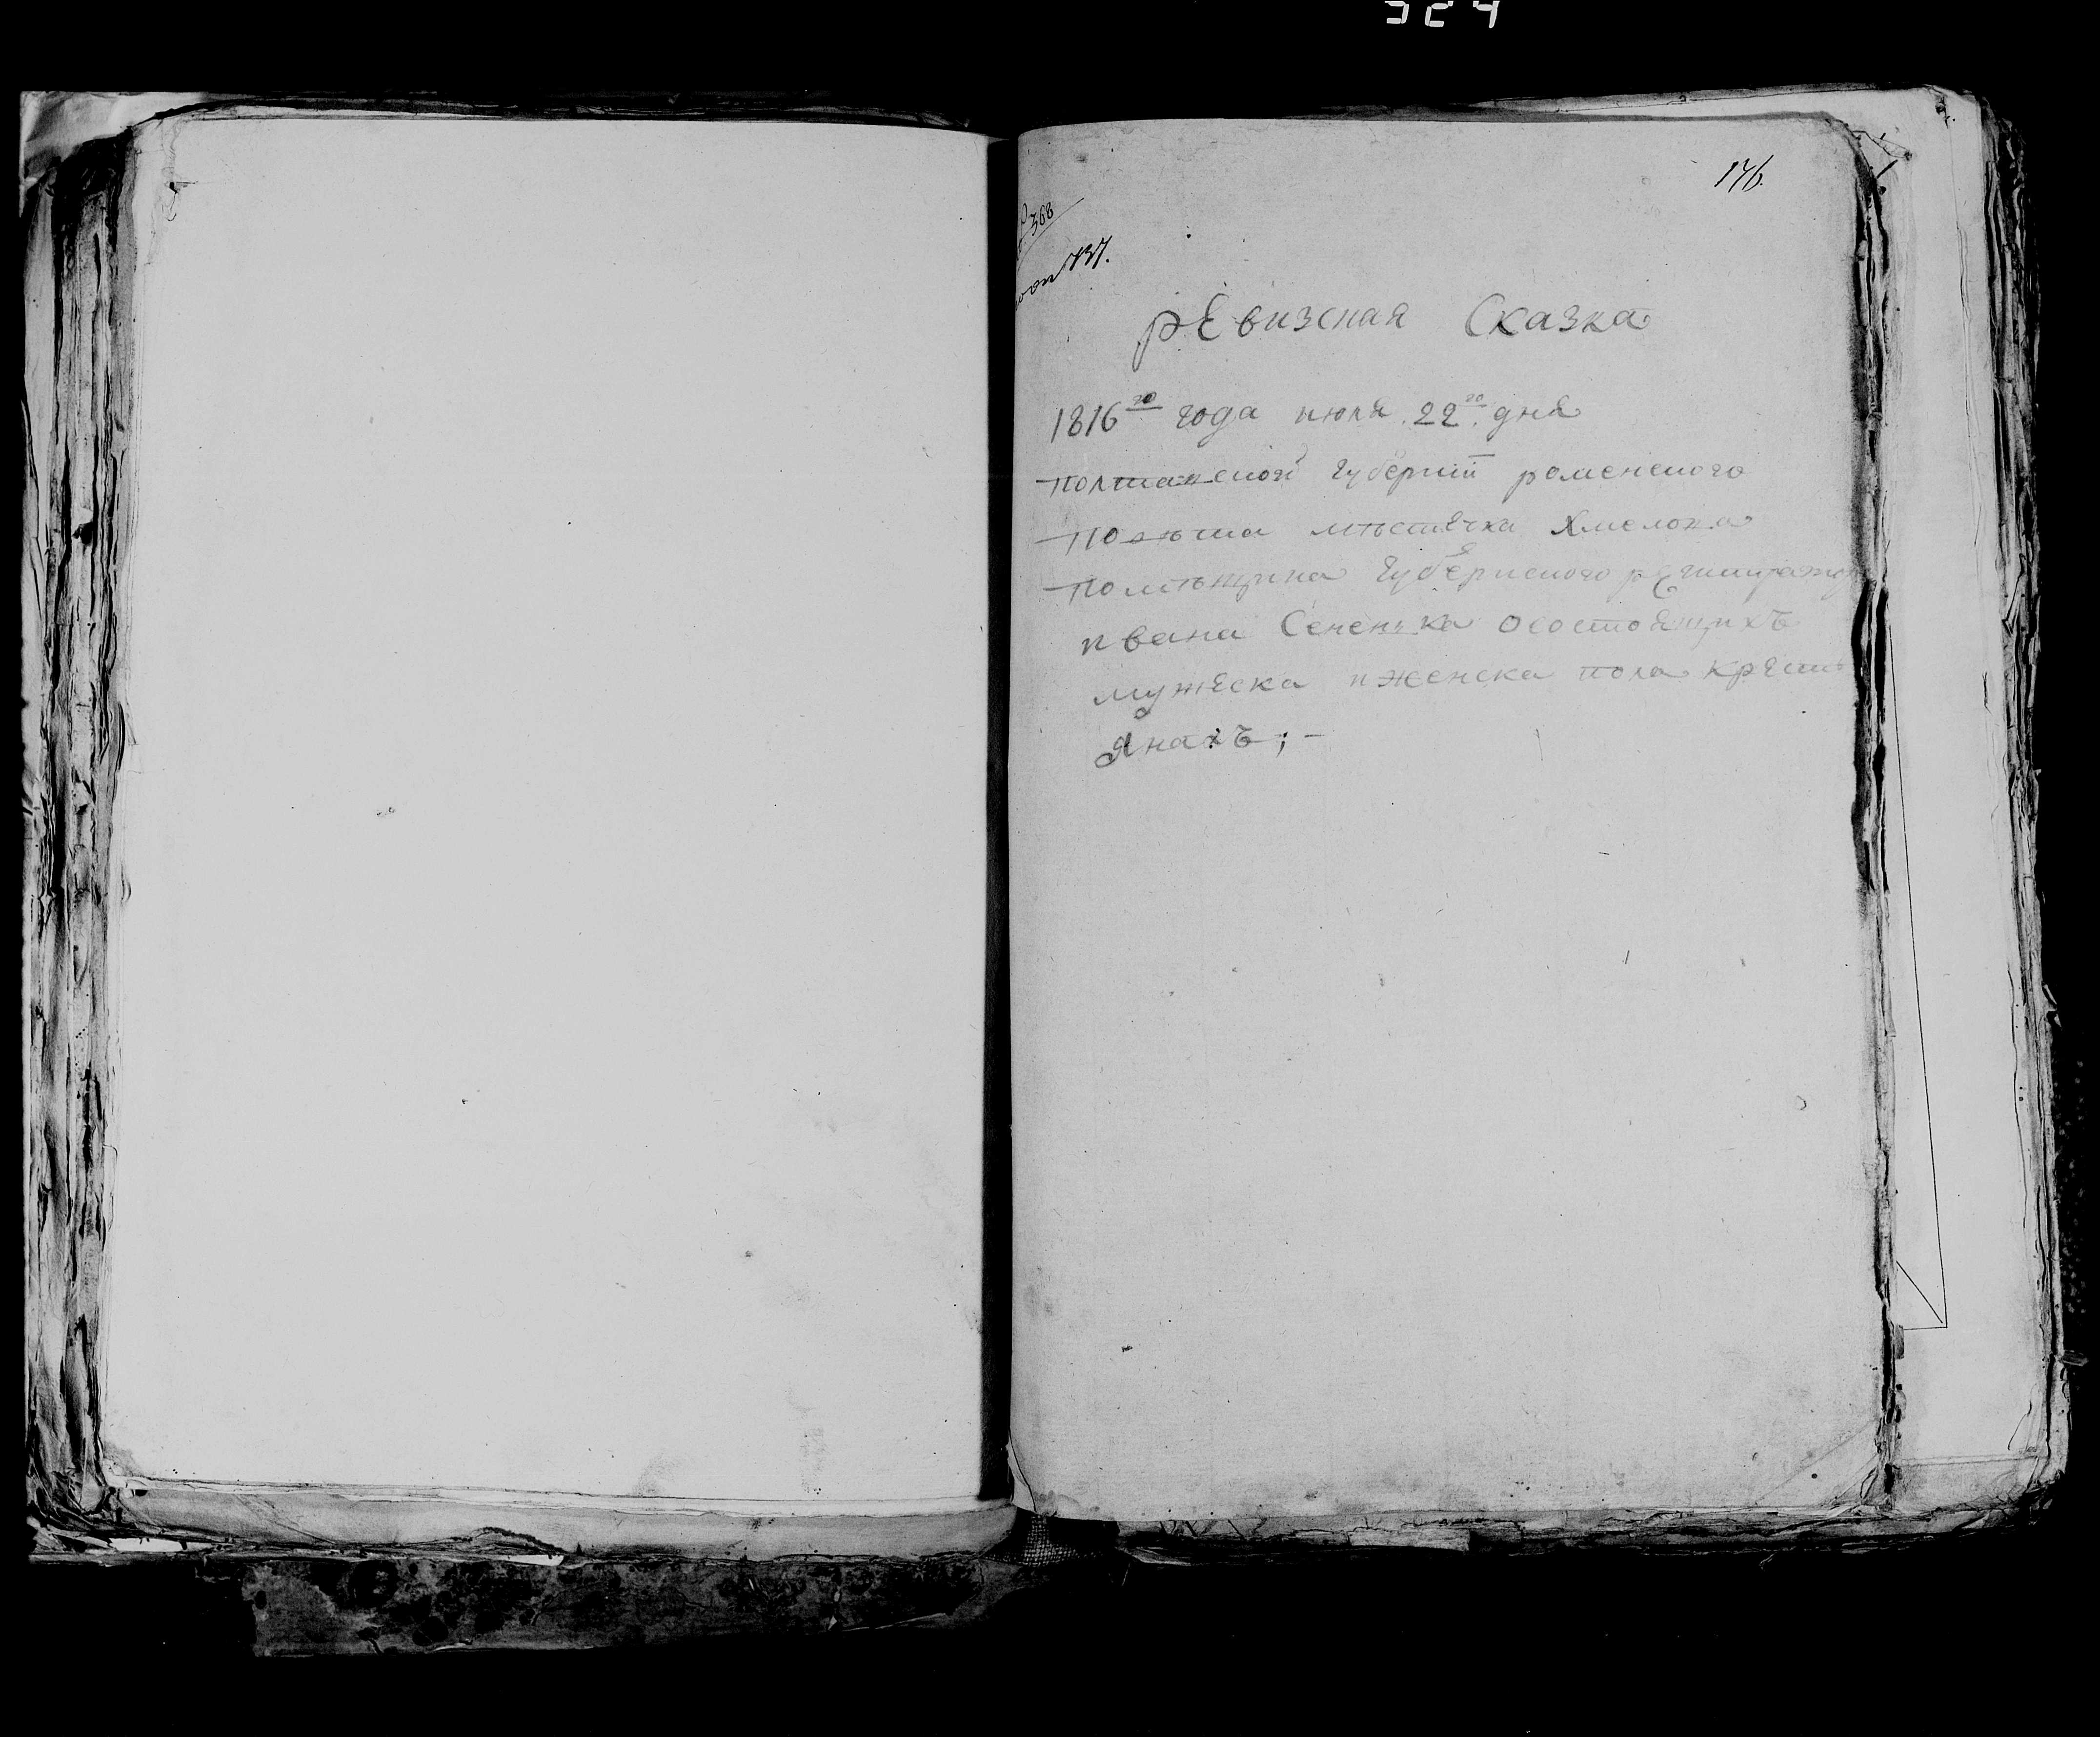 324
146.
368
137.
рЕвизская Сказка
1816го года июля 22го дня
полтавской губерніи роменского
повѣта мѣстечка Хмелова
помѣщика губернского регистратора
ивана Сененка осостоящихъ
мужеска иженска пола крест
янахъ; -